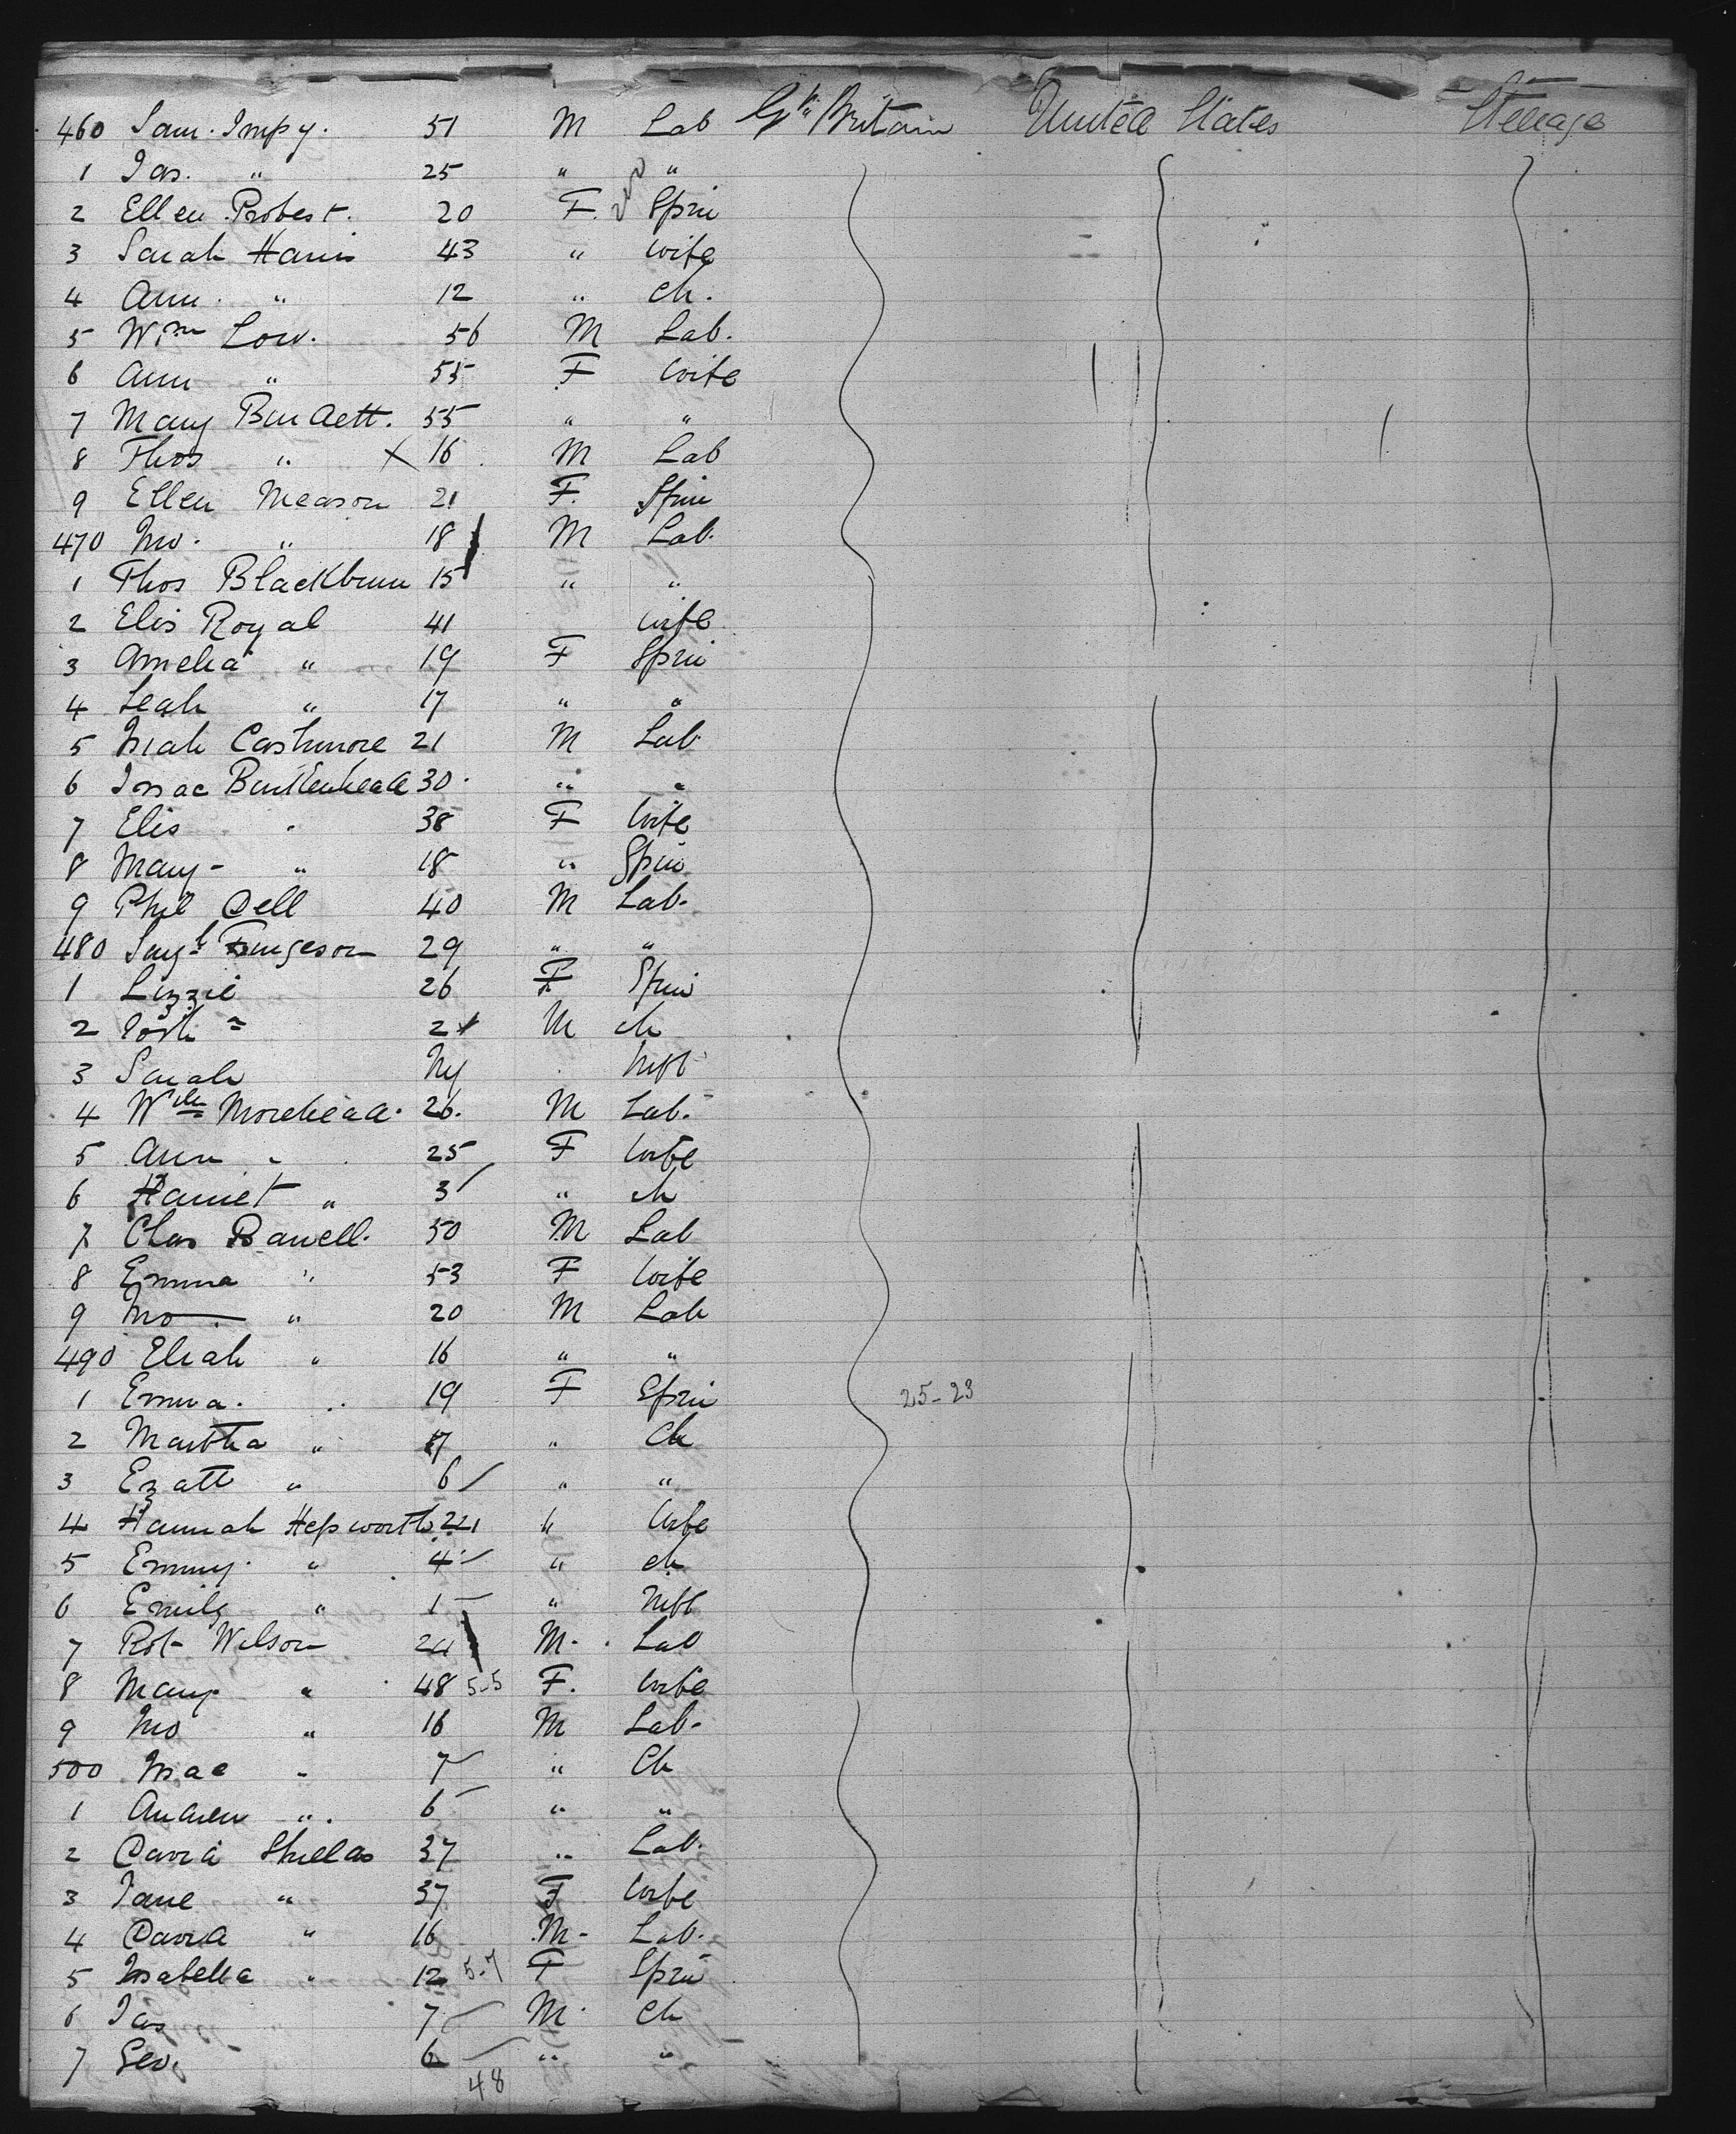 460 Sam. Impy. 51 M Lab Gt. Britain United States Steerage
1 Jas. " 25 " "
2 Ellen Probest. 20 F. Spin
3 Sarah Harris 43 " wife
4 Ann. " 12 " ch.
5 Wm Low. 56 M Lab.
6 Ann " 55 F Wife
7 Mary Burdett. 55 " "
8 Thos " X 16 M Lab
9 Ellen Meason 21 F. Spin
470 Jno. " 18 M Lab.
1 Thos Blackburn 15 " "
2 Elis Royal 41 Wife
3 Amelia " 19 F Spin
4 Leah " 17 " "
5 Isiah Cashmore 21 M Lab
6 Issac 30 " "
7 Elis " 38 F Wife
8 Mary - " 18 " Spin
9 Phil Dell 40 M Lab.
480 Furgeson 29 " "
1 Lizzie 26 F Spin
2 2 M ch
3 Sarah Inft
4 Wm Morehead. 26. M Lab.
5 Ann " 25 F Wife
6 Harriet " 3 " ch
7 Chas Barwell. 50 M Lab
8 Emma " 53 F Wife
9 Jno. " 20 M Lab
490 Eliah " 16 " "
1 Emma. " 19 F Spin 25-23
2 Martha " " Ch
3 " 6 " "
4 Hannah Hepworth " Wife
5 Emmy. " 4 " ch
6 Emily " 1 " Inft
7 Rob Wilson 24 M. Lab
8 Mary " 48 5-5 F. Wife
9 Jno " 16 M Lab.
500 Isac " 7 " Ch
1 Andrew " 6 " "
2 David Shields 37 " Lab.
3 Jane " 37 F Wife
4 David " 16 M. Lab.
5 Isabella " 12 5-7 F Spin
6 Jas 7 M. Ch
7 Geo. 6 " "
48